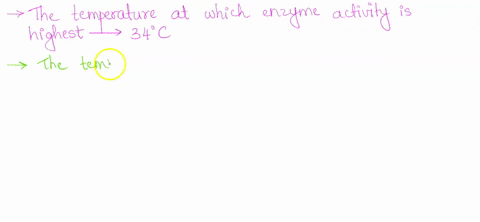 → The temperature at which enzyme activity is
highest → 34°C
→ The tem